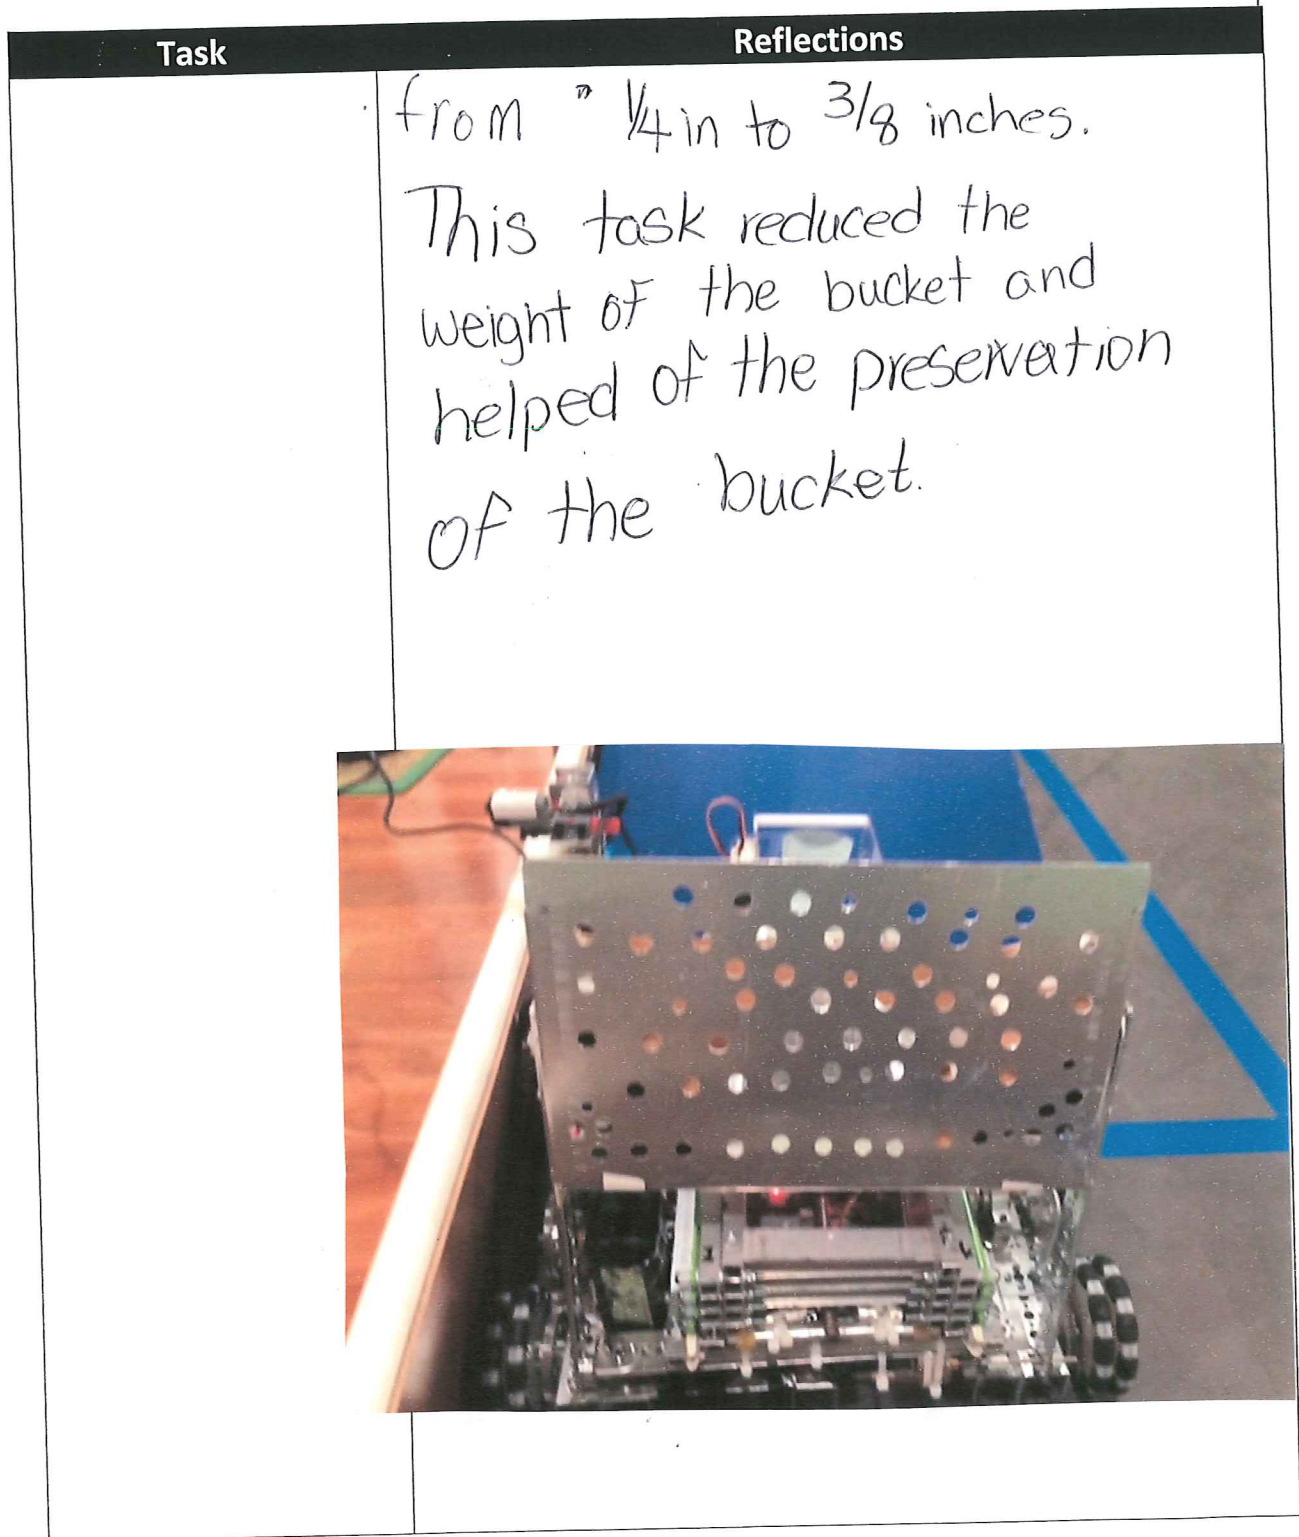 Task
Reflections
from " 1/4 in to 3/8 inches.
This task reduced the
weight of the bucket and
helped of the preservation
of the bucket.